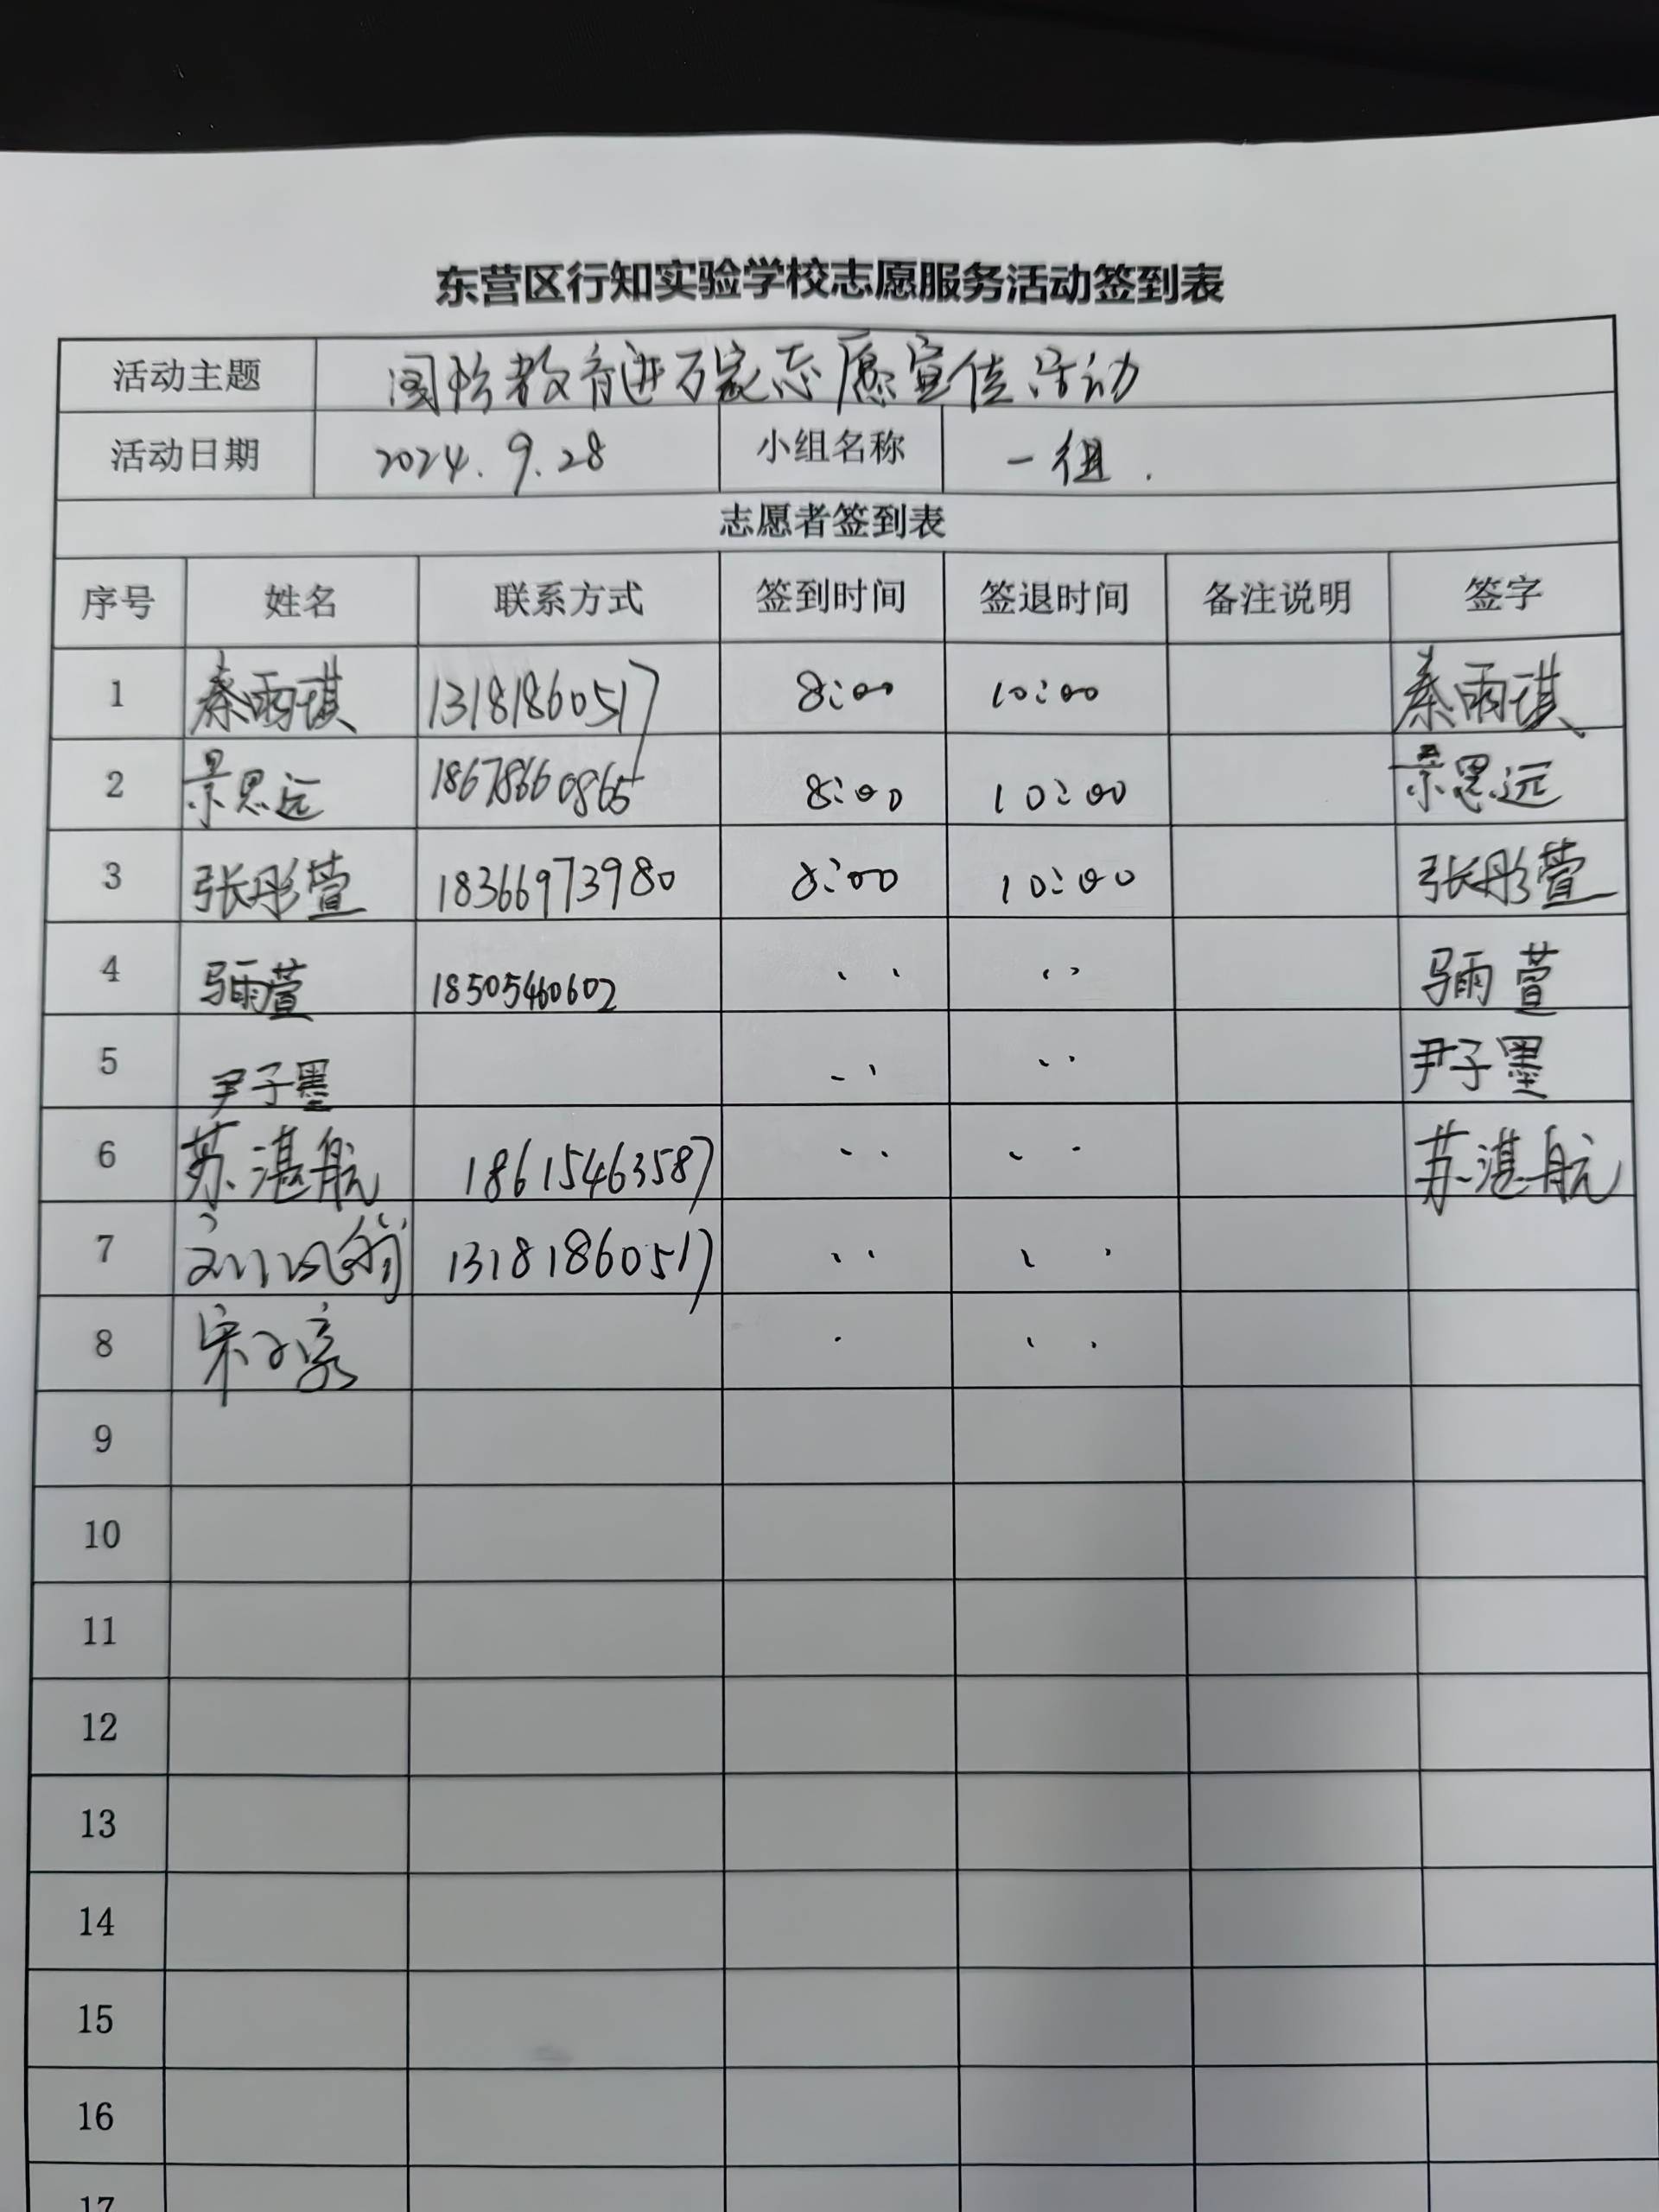 东营区行知实验学校志愿服务活动签到表
活动主题 国防教育进万家志愿宣传活动
活动日期 2024.9.28 小组名称 一组.
志愿者签到表
序号 姓名 联系方式 签到时间 签退时间 备注说明 签字
1 秦雨琪 13181860517 8:00 10:00 秦雨琪
2 景思远 18678660865 8:00 10:00 景思远
3 张彤萱 18366973980 8:00 10:00 张彤萱
4 马雨萱 18505460602 马雨萱
5 尹子墨 尹子墨
6 苏湛航 18615463587 苏湛航
7 13181860517
8 宋子豪
9
10
11
12
13
14
15
16
17